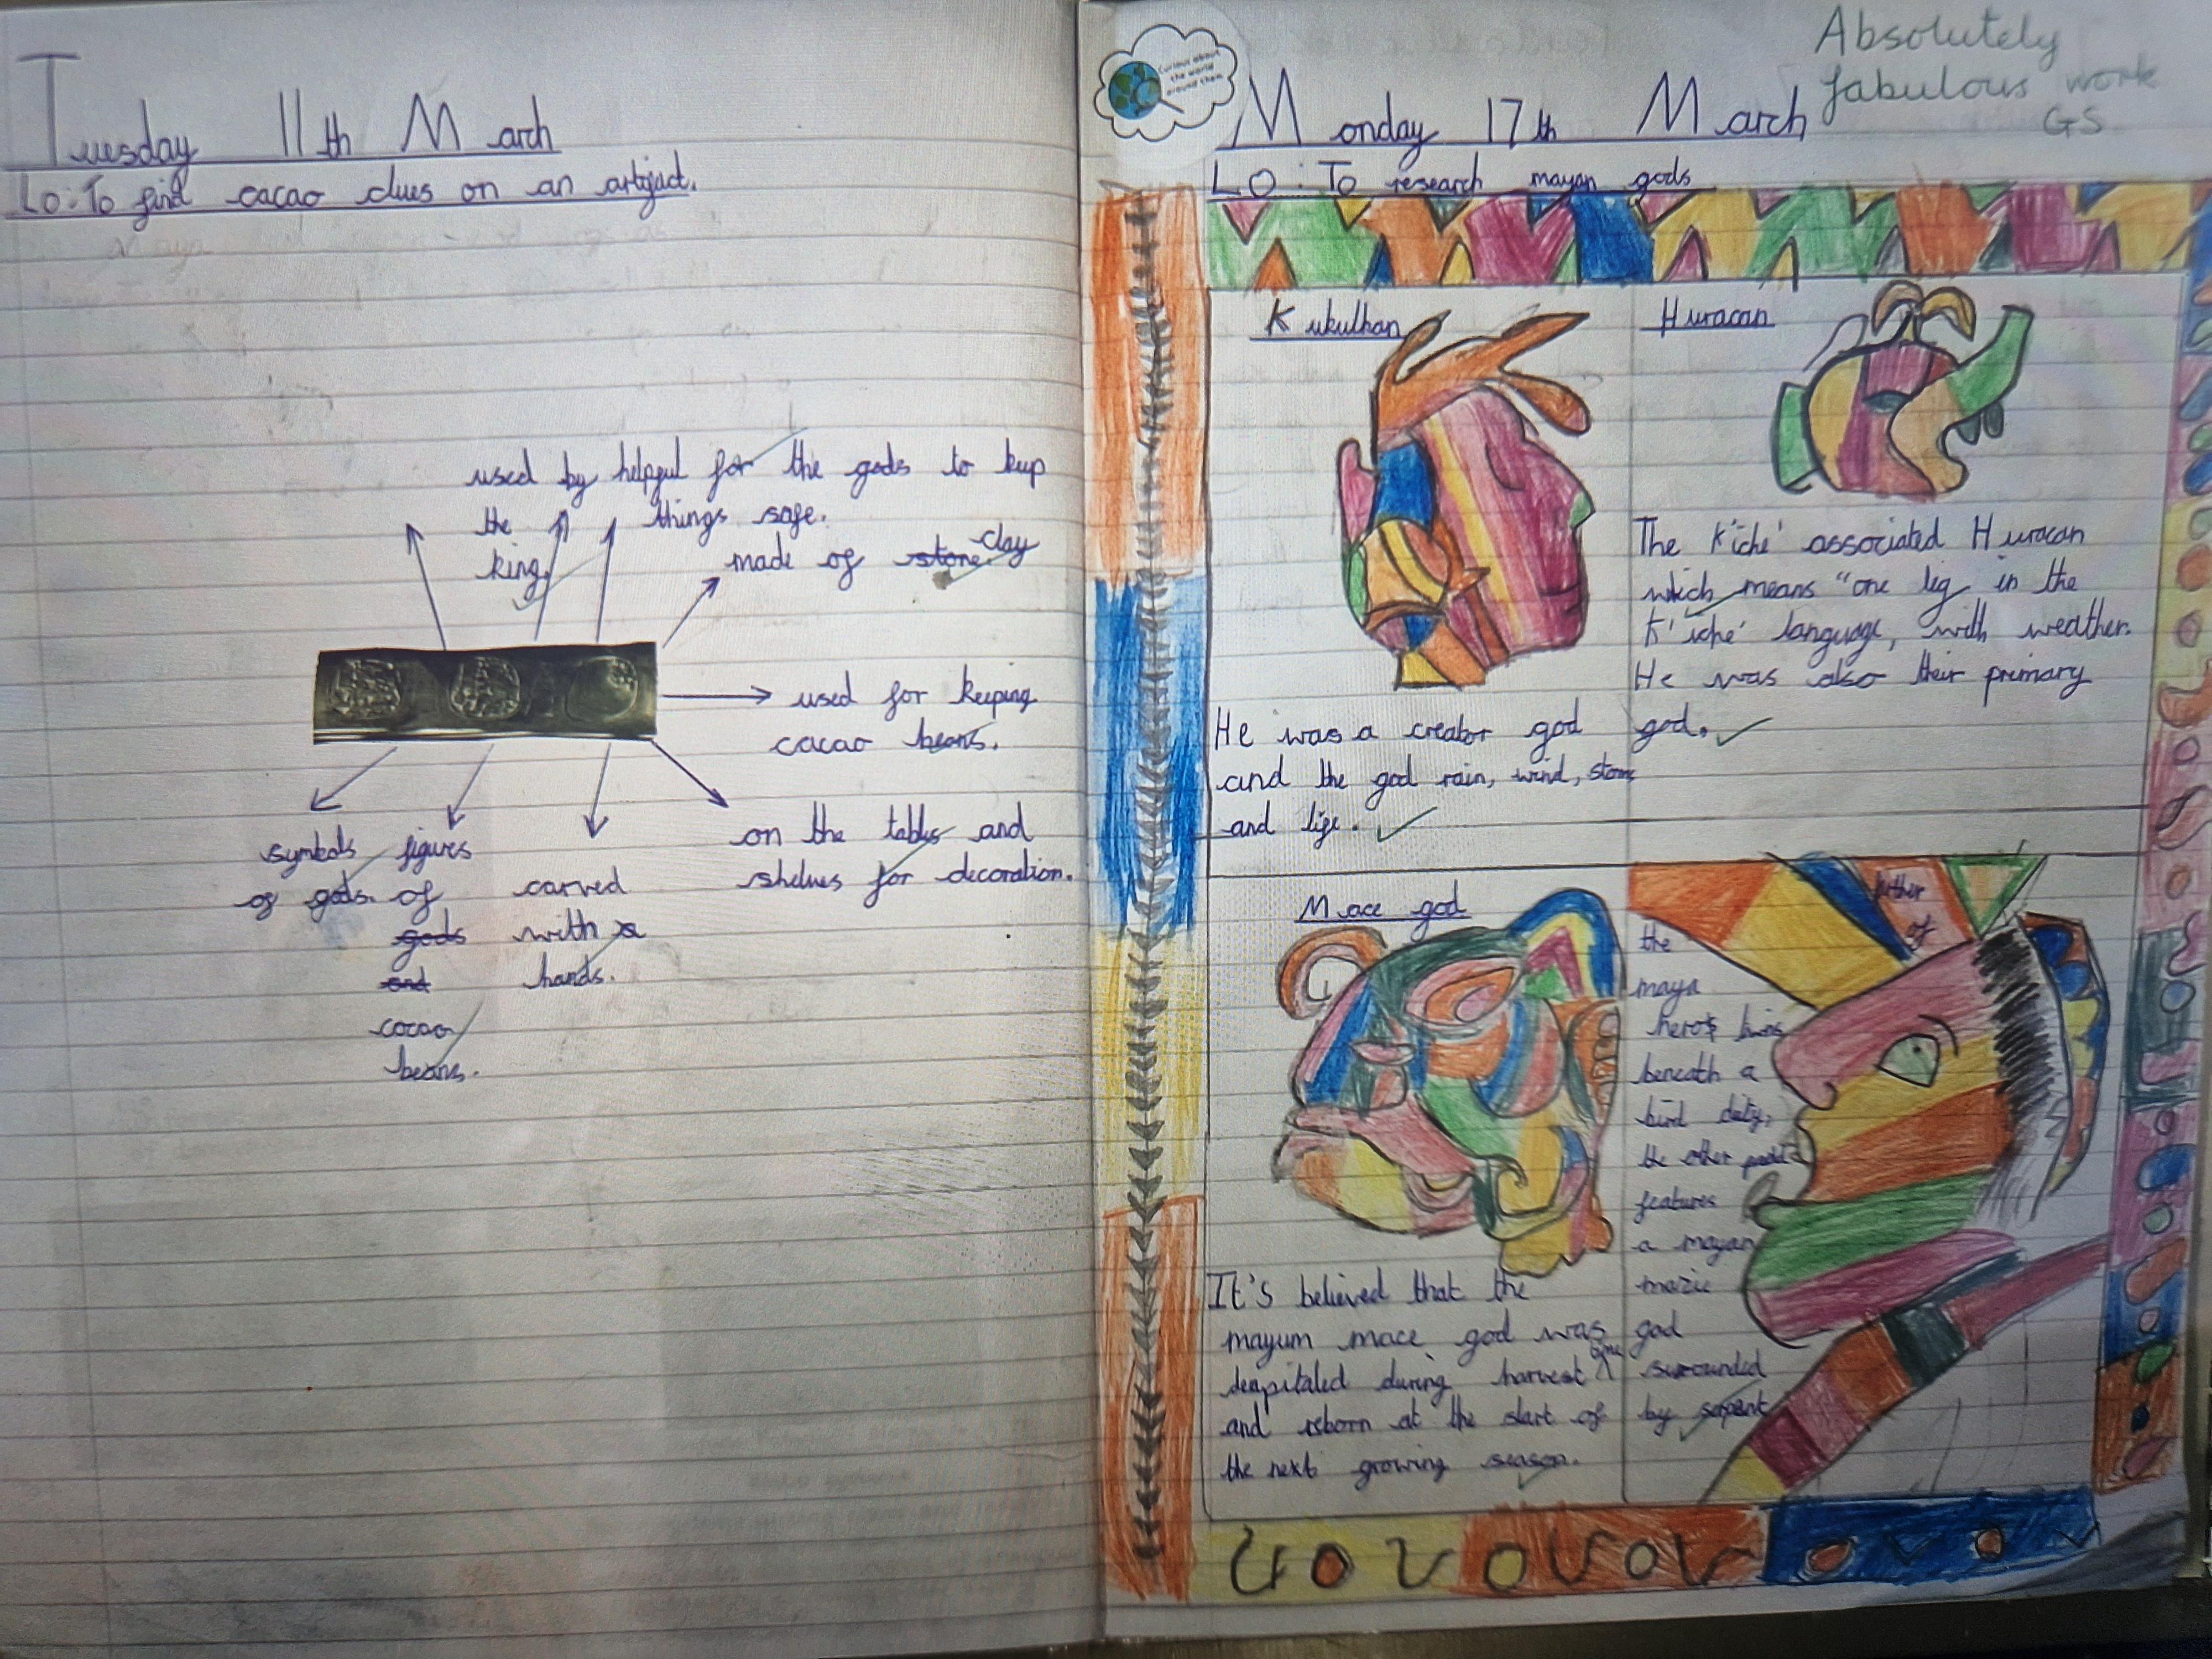 Tuesday 11th March
Lo: To find cacao clues on an artifact.
used by
the
king.
helpful for the gods to keep
things safe.
clay
made of stone.
used for keeping
cacao beans.
symbols
of gods.
figures
of
gods
and
cocao
beans.
carved
with a
hands.
on the tables and
shelves for decoration.
Curious about
the world
around them
Absolutely
fabulous work
GS
Monday 17th March
LO: To research mayan gods
Kukulkan
He was a creator god
and the god rain, wind, storms
and life.
Huracan
The K'iche' associated Huracan
which means "one leg in the
K'iche' language, with weather.
He was also their primary
god.
Mace god
It's believed that the
mayum mace god was
time
deapitaled during harvest
and reborn at the start of
the next growing season.
father
of
the
maya
heros twins
beneath a
bird deity,
the other
features
a mayan
mazie
god
surrounded
by serpent